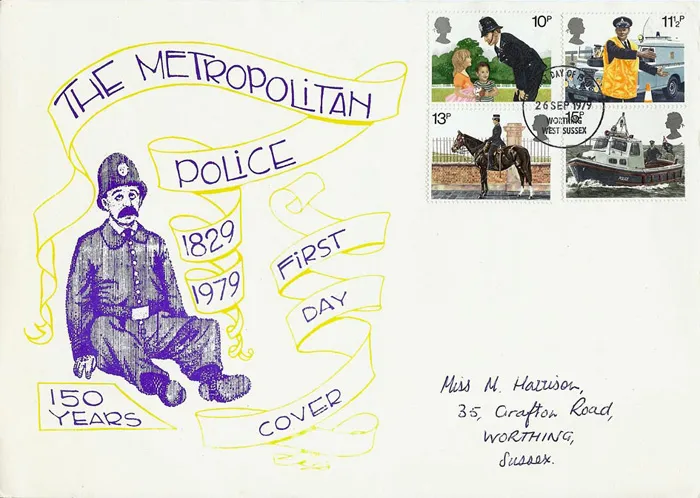 THE METROPOLITAN
POLICE
1829
1979
FIRST
DAY
COVER
150
YEARS
10P
11½P
13P
15P
DAY OF IS
26 SEP 1979
WORTHING
WEST SUSSEX
POLICE
Miss M. Harrison,
35, Grafton Road,
WORTHING,
Sussex.